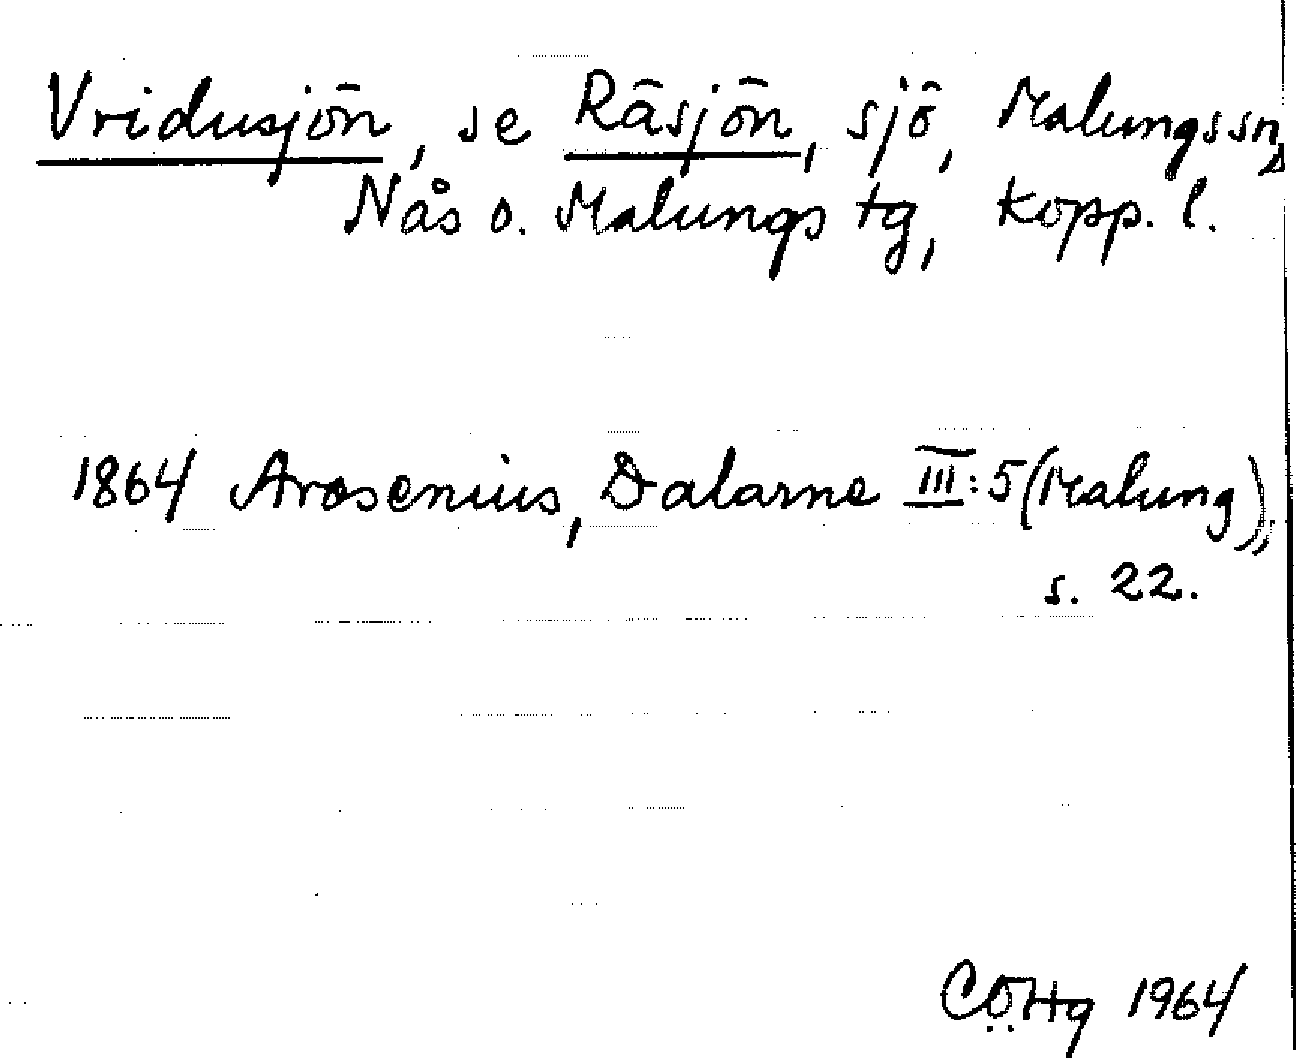 Vridusjön, se Räsjön, sjö, Malungs sn,
Nås o. Malungs tg, Kopp. l.
1864 Arosenius, Dalarne III:5 (Malung),
s. 22.
CÖHg 1964